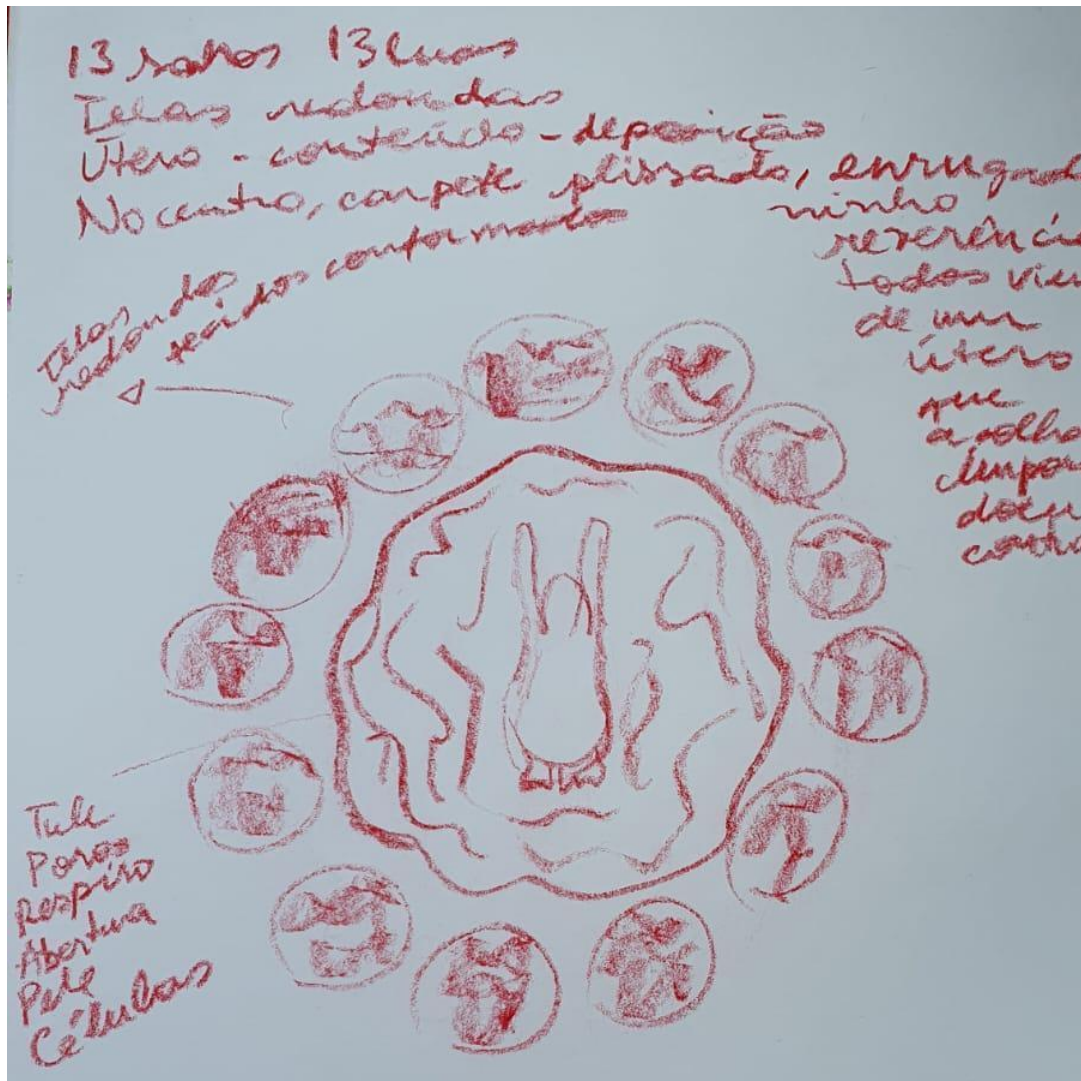 13 13 luas
Telas redondas
Útero - conteúdo - deposição
No centro, carpete plissado, enrugad
ninho
reverência
todos vie
de um
útero
que
acolhe
limpa
Telas
redondas
tecidos conformados
Tule
Poros
Respiro
Abertura
Pele
Células